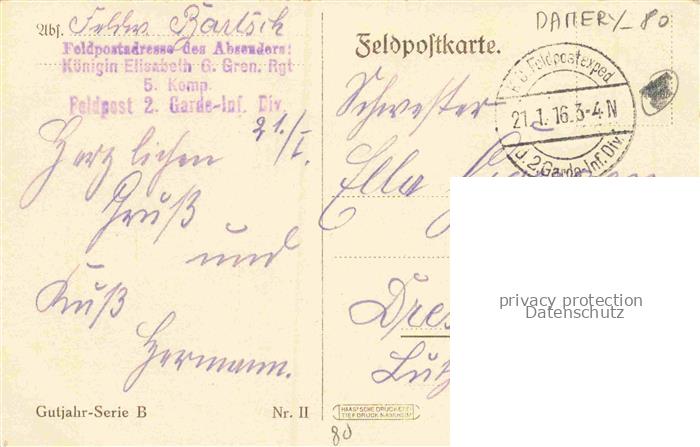 DAMERY 80
Abs. Feldw. Bartsch
Feldpostadresse des Absenders:
Königin Elisabeth G. Gren. Rgt
5. Komp.
Feldpost 2. Garde-Inf. Div.
21./I.
Herzlichen
Gruß
und
Kuß
Hermann.
Gutjahr-Serie B Nr. II
Feldpostkarte.
Feldpostexped.
21.1.16.3-4N
d. 2. Garde-Inf. Div.
Schwester
Ella
Dres
privacy protection
Datenschutz
80